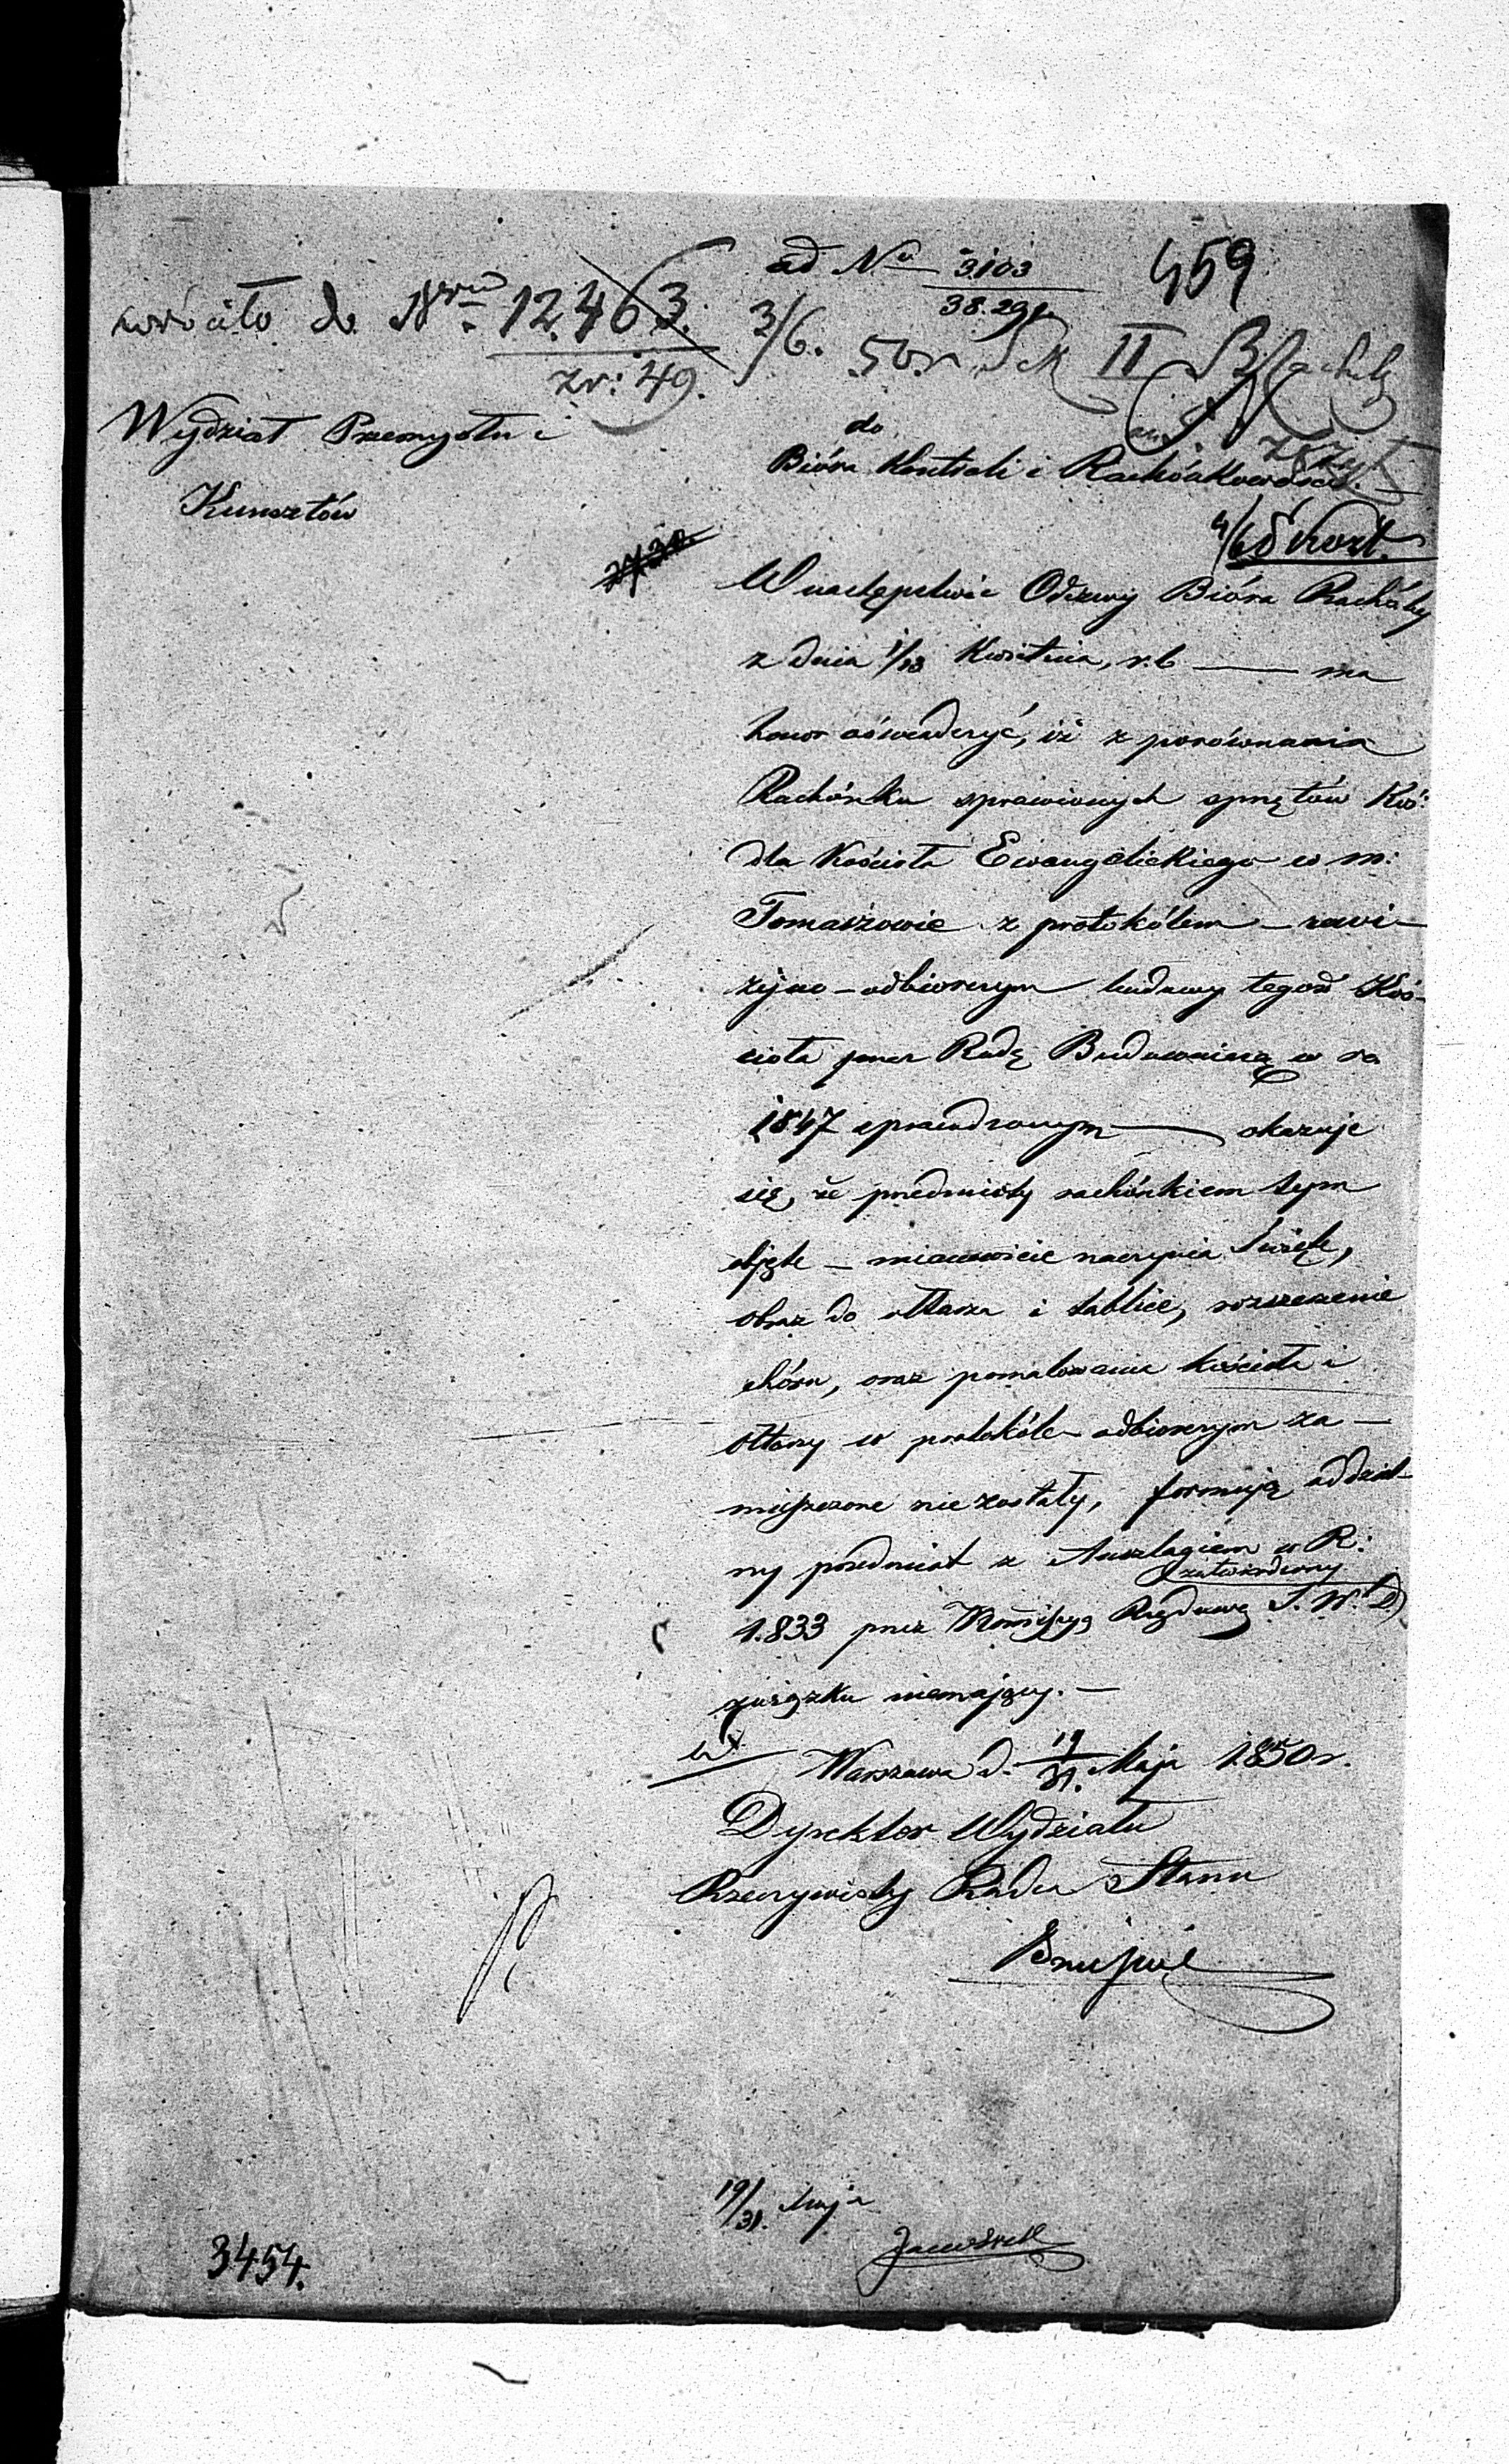 ad Nu 3103 459
38.291
wróciło do Nru 12.463. 3/6. 50 r. Sek II
zr: 49.
Wydział Przemysłu i
Kunsztów
do
Bióra Kontroli i Rachónkowości. —
W następstwie Odezwy Bióra Rachóby
z dnia 1/13 Kwietnia, r. b — ma
honor oświadczyć, iż z porównania
Rachónku sprawionych sprzętów Koś:
dla Kościoła Ewangelickiego w m:
Tomaszowie z protokólem — rewi-
zyjno – odbiorczym budowy tegoż Koś-
cioła przez Radę Budowniczą w ro
1847 sprawdzonym — okazuje
się, że przedmioty rachónkiem tym
objęte – mianowicie naczynia Święte,
obraz do ołtarza i tablice, rozszerzenie
chóru, oraz pomalowanie kościoła i
ołtarzy w protokóle odbiorczym za —
mieszczone nie zostały, formują oddziel-
ny przedmiot z Anszlagiem w R:
zatwierdzony
1.833 przez Kommissyą Rządową S. W. D.
związku niemający. —
Warszawa d. 19/31. Maja 1850 r.
Dyrektor Wydziału
Rzeczywisty Radca Stanu
19/31. Maja
3454.